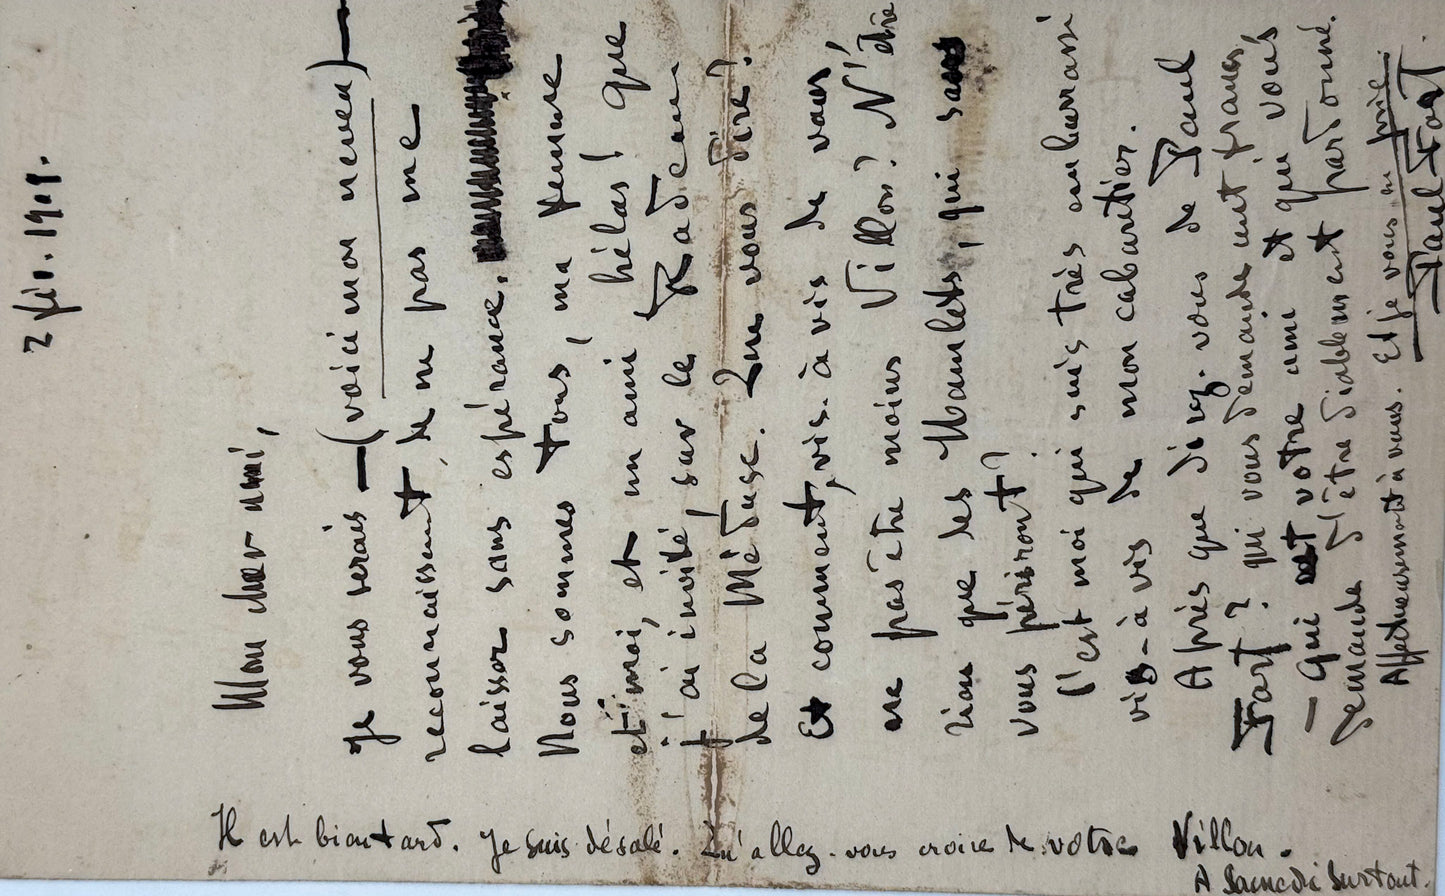 2 fév. 1909.
Mon cher ami,
Je vous serais — (voici mon neveu) —
reconnaissant de ne pas me
laisser sans espérance.
Nous sommes tous, ma femme
et moi, et un ami, hélas! que
j'ai invité, sur le Radeau
de la Méduse. Que vous dire?
Et comment, vis-à-vis de vous,
ne pas être moins Villon? N'être
rien que les Hamlets, qui sans
vous périront?
C'est moi qui suis très embarrassé
vis-à-vis de mon cabaretier.
Après que direz-vous de Paul
Fort? qui vous demande cent francs,
— qui est votre ami et que vous
demande d'être diablement pardonné.
Affectueusement à vous. Et je vous en prie
Paul Fort.
Il est bien tard. Je suis désolé. Qu'allez-vous croire de votre Villon.
A Samedi surtout.